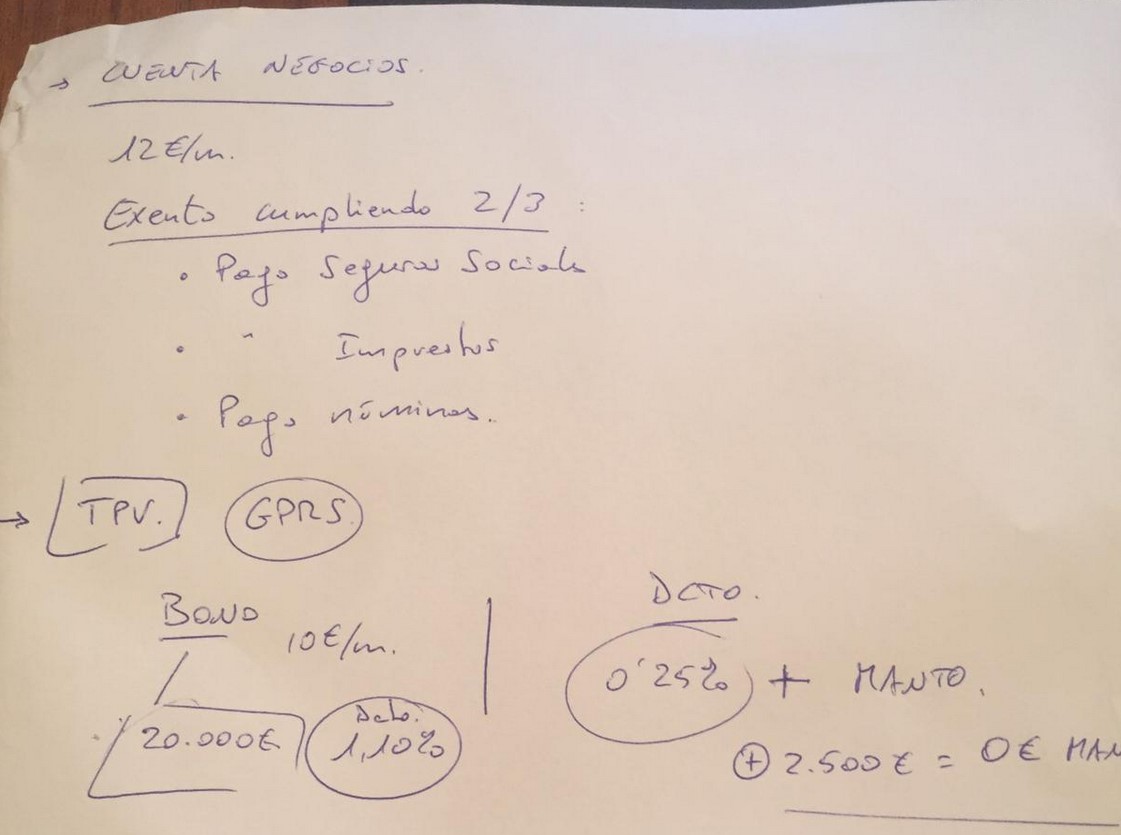 → CUENTA NEGOCIOS.
12 €/m.
Exento cumpliendo 2/3 :
• Pago Seguros Sociales
• " Impuestos
• Pago nóminas.
→ TPV. GPRS.
BONO
10 €/m.
20.000 €
Dcto.
1,10%
DCTO.
0'25% + MANTO.
⊕ 2.500 € = 0 € MAN